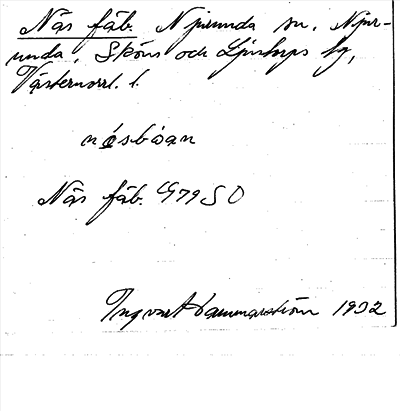 Näs fäb. Njurunda sn, Njur-
unda, Sköns och Ljustorps tg,
Västernorrl. l.
näsbóan
Näs fäb. G79SO
Ingvar Hammarström 1932